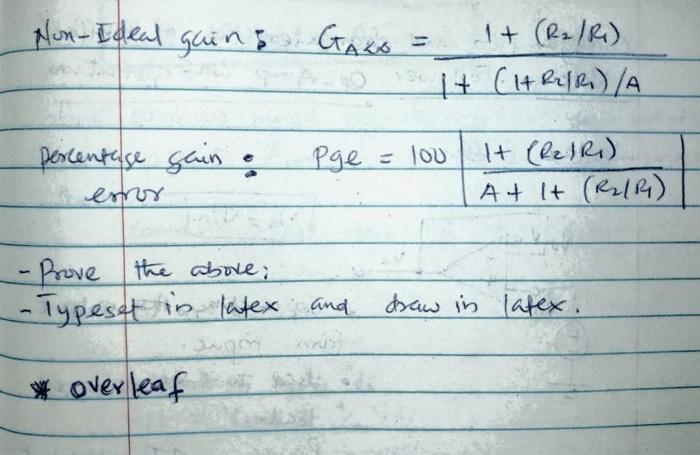 Non-Ideal gain : G_{A<∞} = 1 + (R₂/R₁) / 1 + (1+R₂/R₁)/A
percentage gain : Pge = 100 | 1 + (R₂/R₁) / A + 1 + (R₂/R₁) |
error
- Prove the above;
- Typeset in latex and draw in latex.
* overleaf